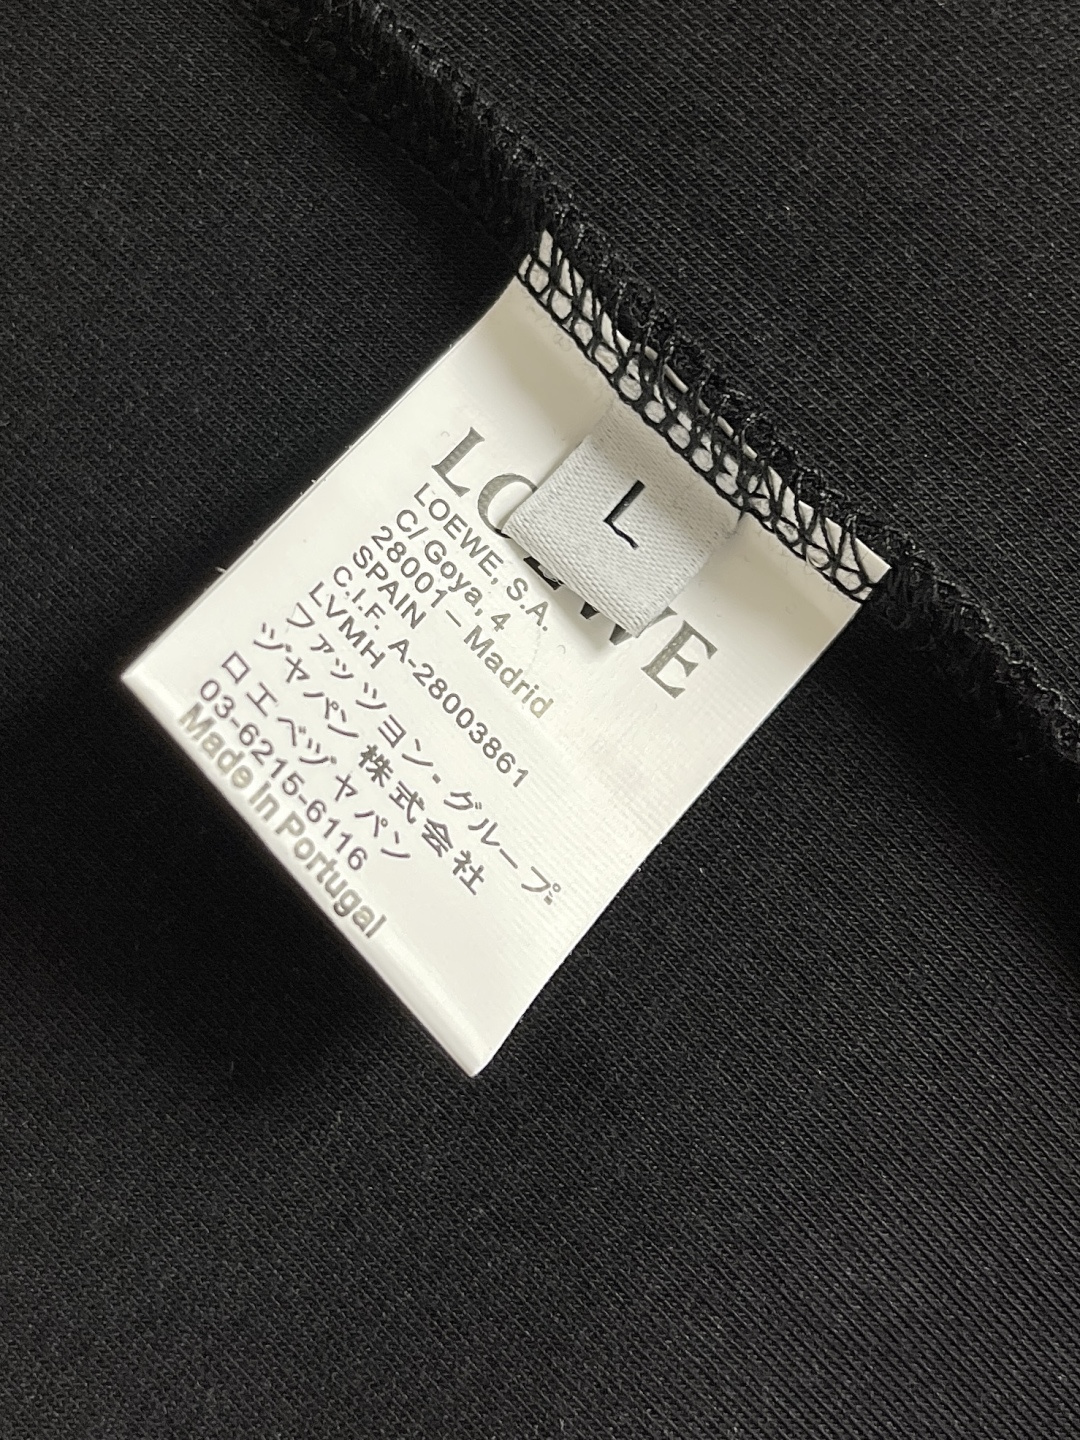 L
LOEWE
LOEWE, S.A.
C/ Goya, 4
28001 – Madrid
SPAIN
C.I.F. A-28003861
LVMH
ファッツヨン・グループ・
ジャパン 株式会社
ロエベヅャパン
03-6215-6116
Made in Portugal